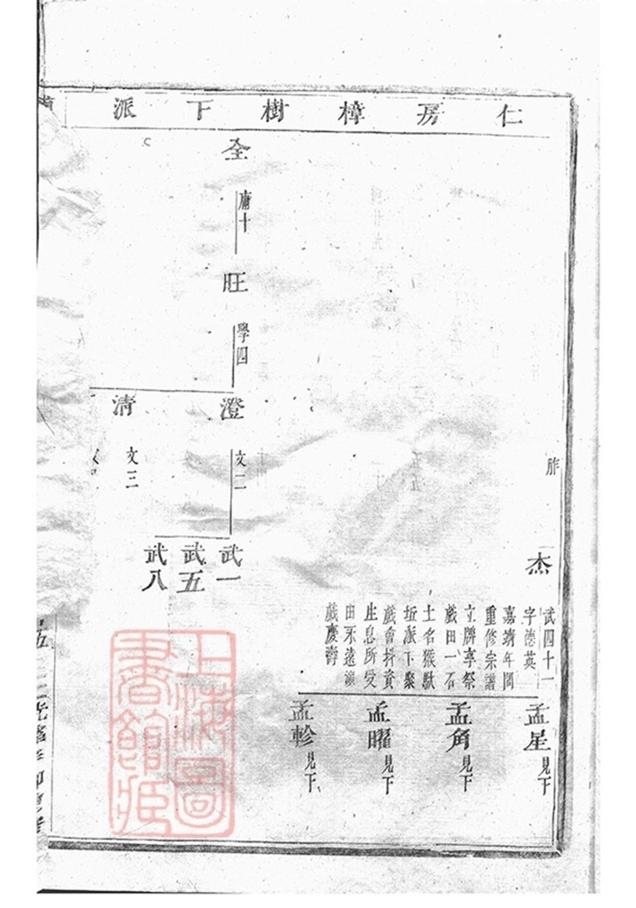 仁房樟樹下派
祚
杰
武四十一
字德英
嘉靖年間
重修宗譜
立牌享祭
戲田一石
土名猴馱
坵派下聚
戲會抖資
生息所受
田永遠演
戲慶壽
孟星見下
孟角見下
孟曜見下
孟軫見下
全
庸十
旺
學四
澄
文二
武一
武五
武八
清
文三
上海圖
書館藏